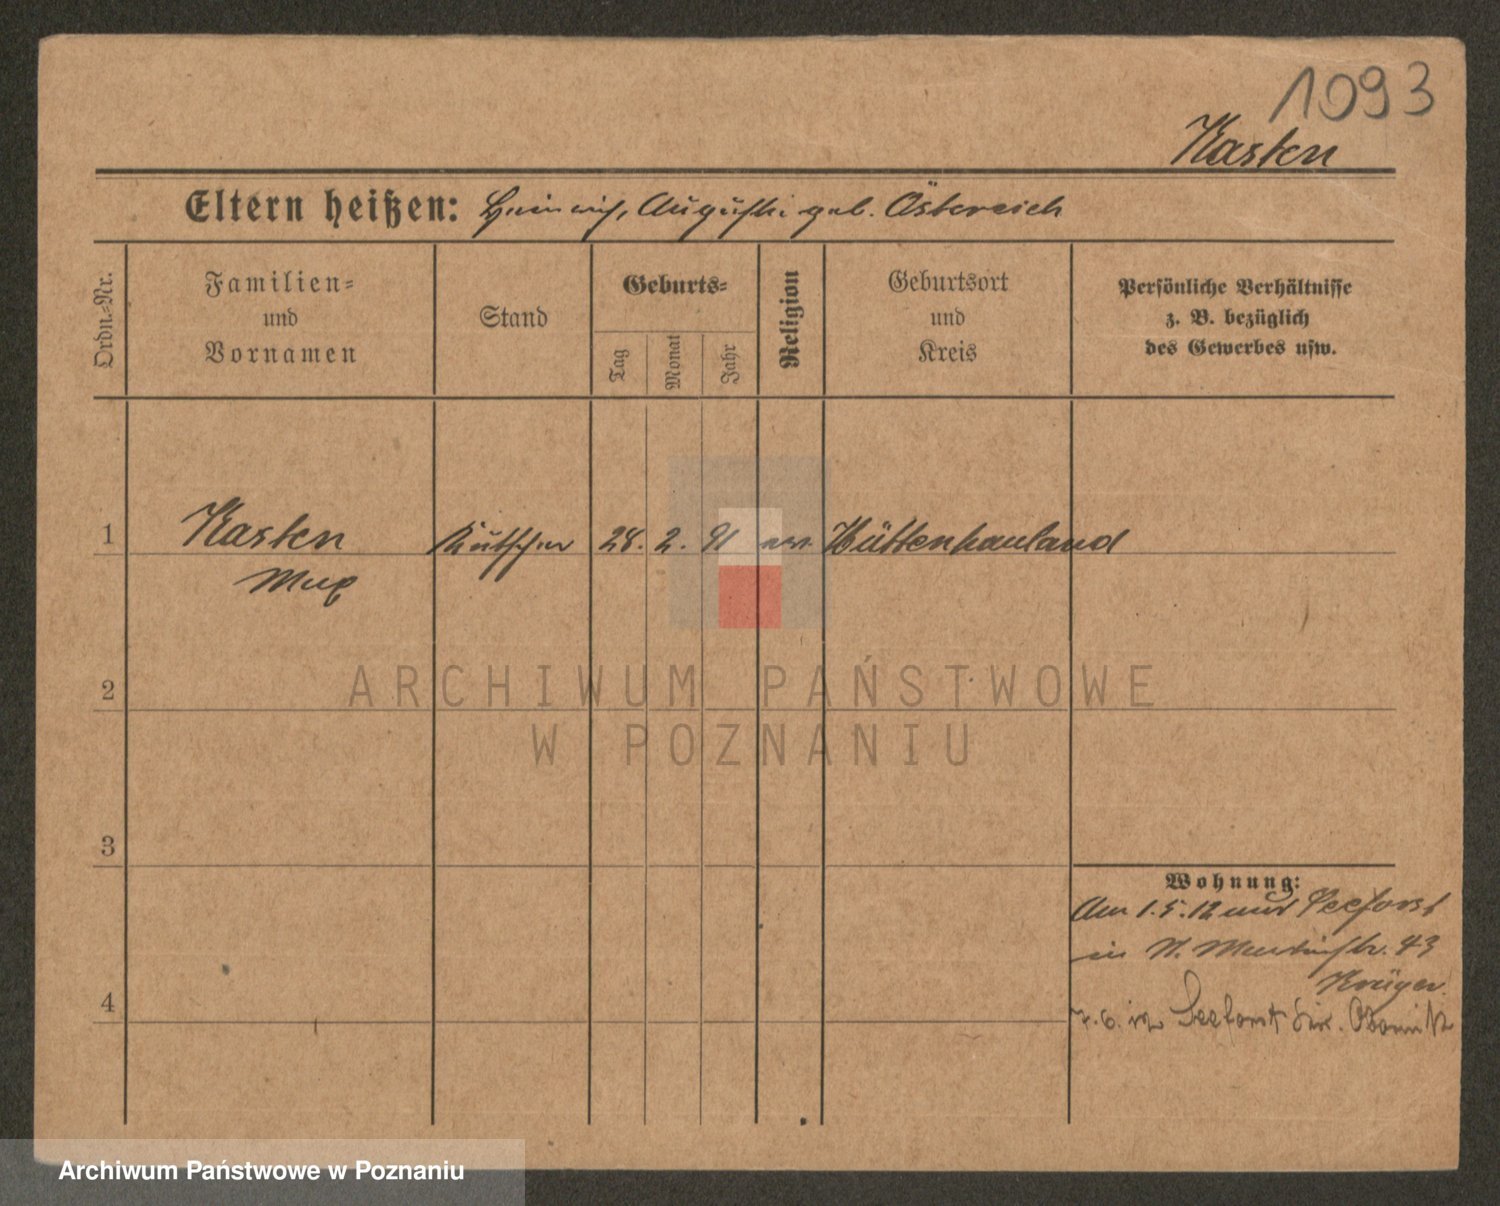 1093
Kasten
Eltern heißen: Heinrich, Auguste geb. Östereich
Ordn.-Nr.
Familien-
und
Vornamen
Stand
Geburts-
Tag
Monat
Jahr
Religion
Geburtsort
und
Kreis
Persönliche Verhältnisse
z. B. bezüglich
des Gewerbes usw.
1 Kasten Kutscher 28. 2. 91 ev. Hüttenhauland
Max
2
ARCHIWUM PAŃSTWOWE
W POZNANIU
3
Wohnung:
Am 1.5.12 aus Seeforst
in St. Martinstr. 43
Krüger.
4
7.6.12 Seeforst Kr.
Archiwum Państwowe w Poznaniu